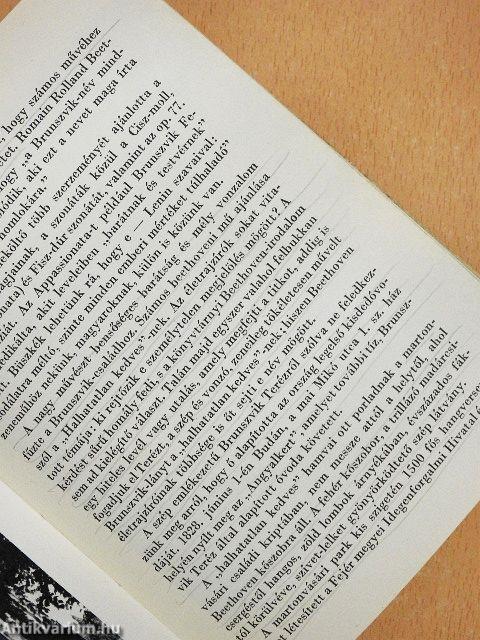 hogy számos művéhez
Romain Rolland Beet-
hogy „a Brunszvik-név mind-
ődik, aki ezt a nevet maga írta
homlokára."
költő több szerzeményét ajánlotta a
tagjainak, a szonáták közül a Cisz-moll,
nata) és Fisz-dúr szonátát, valamint az op. 77.
Az Appassionata-t például Brunszvik Fe-
dikálta, akit leveleiben „barátnak és testvérnek"
Büszkék lehetünk rá, hogy e — Lenin szavaival:
odálatra méltó, szinte minden emberi mértéket túlhaladó"
zeneműhöz nekünk, magyaroknak, külön is közünk van.
A nagy művészt bensőséges barátság és mély vonzalom
fűzte a Brunszvik-családhoz. Számos beethoveni mű ajánlása
szól a „Halhatatlan kedves"-nek. Az életrajzírók sokat vita-
tott témája: ki rejtőzik e személytelen megjelölés mögött? A
kérdést sűrű homály fedi, s a könyvtárnyi Beethoven-irodalom
sem ad kielégítő választ. Talán majd egyszer valahol felbukkan
egy hiteles levél vagy utalás, amely megfejti a titkot, addig is
fogadjuk el Terézt, a szép és vonzó, zeneileg tökéletesen művelt
Brunszvik-lányt a „halhatatlan kedves"-nek, hiszen Beethoven
életrajzíróinak többsége is őt sejti e név mögött.
A szép emlékezetű Brunszvik Terézről szólva ne feledkez-
zünk meg arról, hogy ő alapította az ország legelső kisdedóvo-
dáját. 1828. június 1-én Budán, a mai Mikó utca 1. sz. ház
helyén nyílt meg az „Angyalkert", amelyet további tíz, Brunsz-
vik Teréz által alapított óvoda követett.
A „halhatatlan kedves" hamvai ott porladnak a marton-
vásári családi kriptában, nem messze attól a helytől, ahol
Beethoven kőszobra áll. A fehér kőszobor, a trillázó madárcsi-
csergéstől hangos, zöld lombok árnyékában, évszázados fák-
tól körülvéve, szívet-lelket gyönyörködtető szép látvány.
A martonvásári park kis szigetén 1500 fős hangverse
létesített a Fejér megyei Idegenforgalmi Hivatal é
Antikvárium.hu